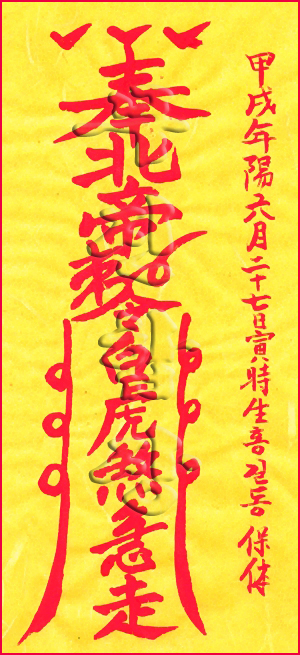 甲戌年陽六月二十七日寅時生홍길동 保体
奉北帝敕令白虎煞急走